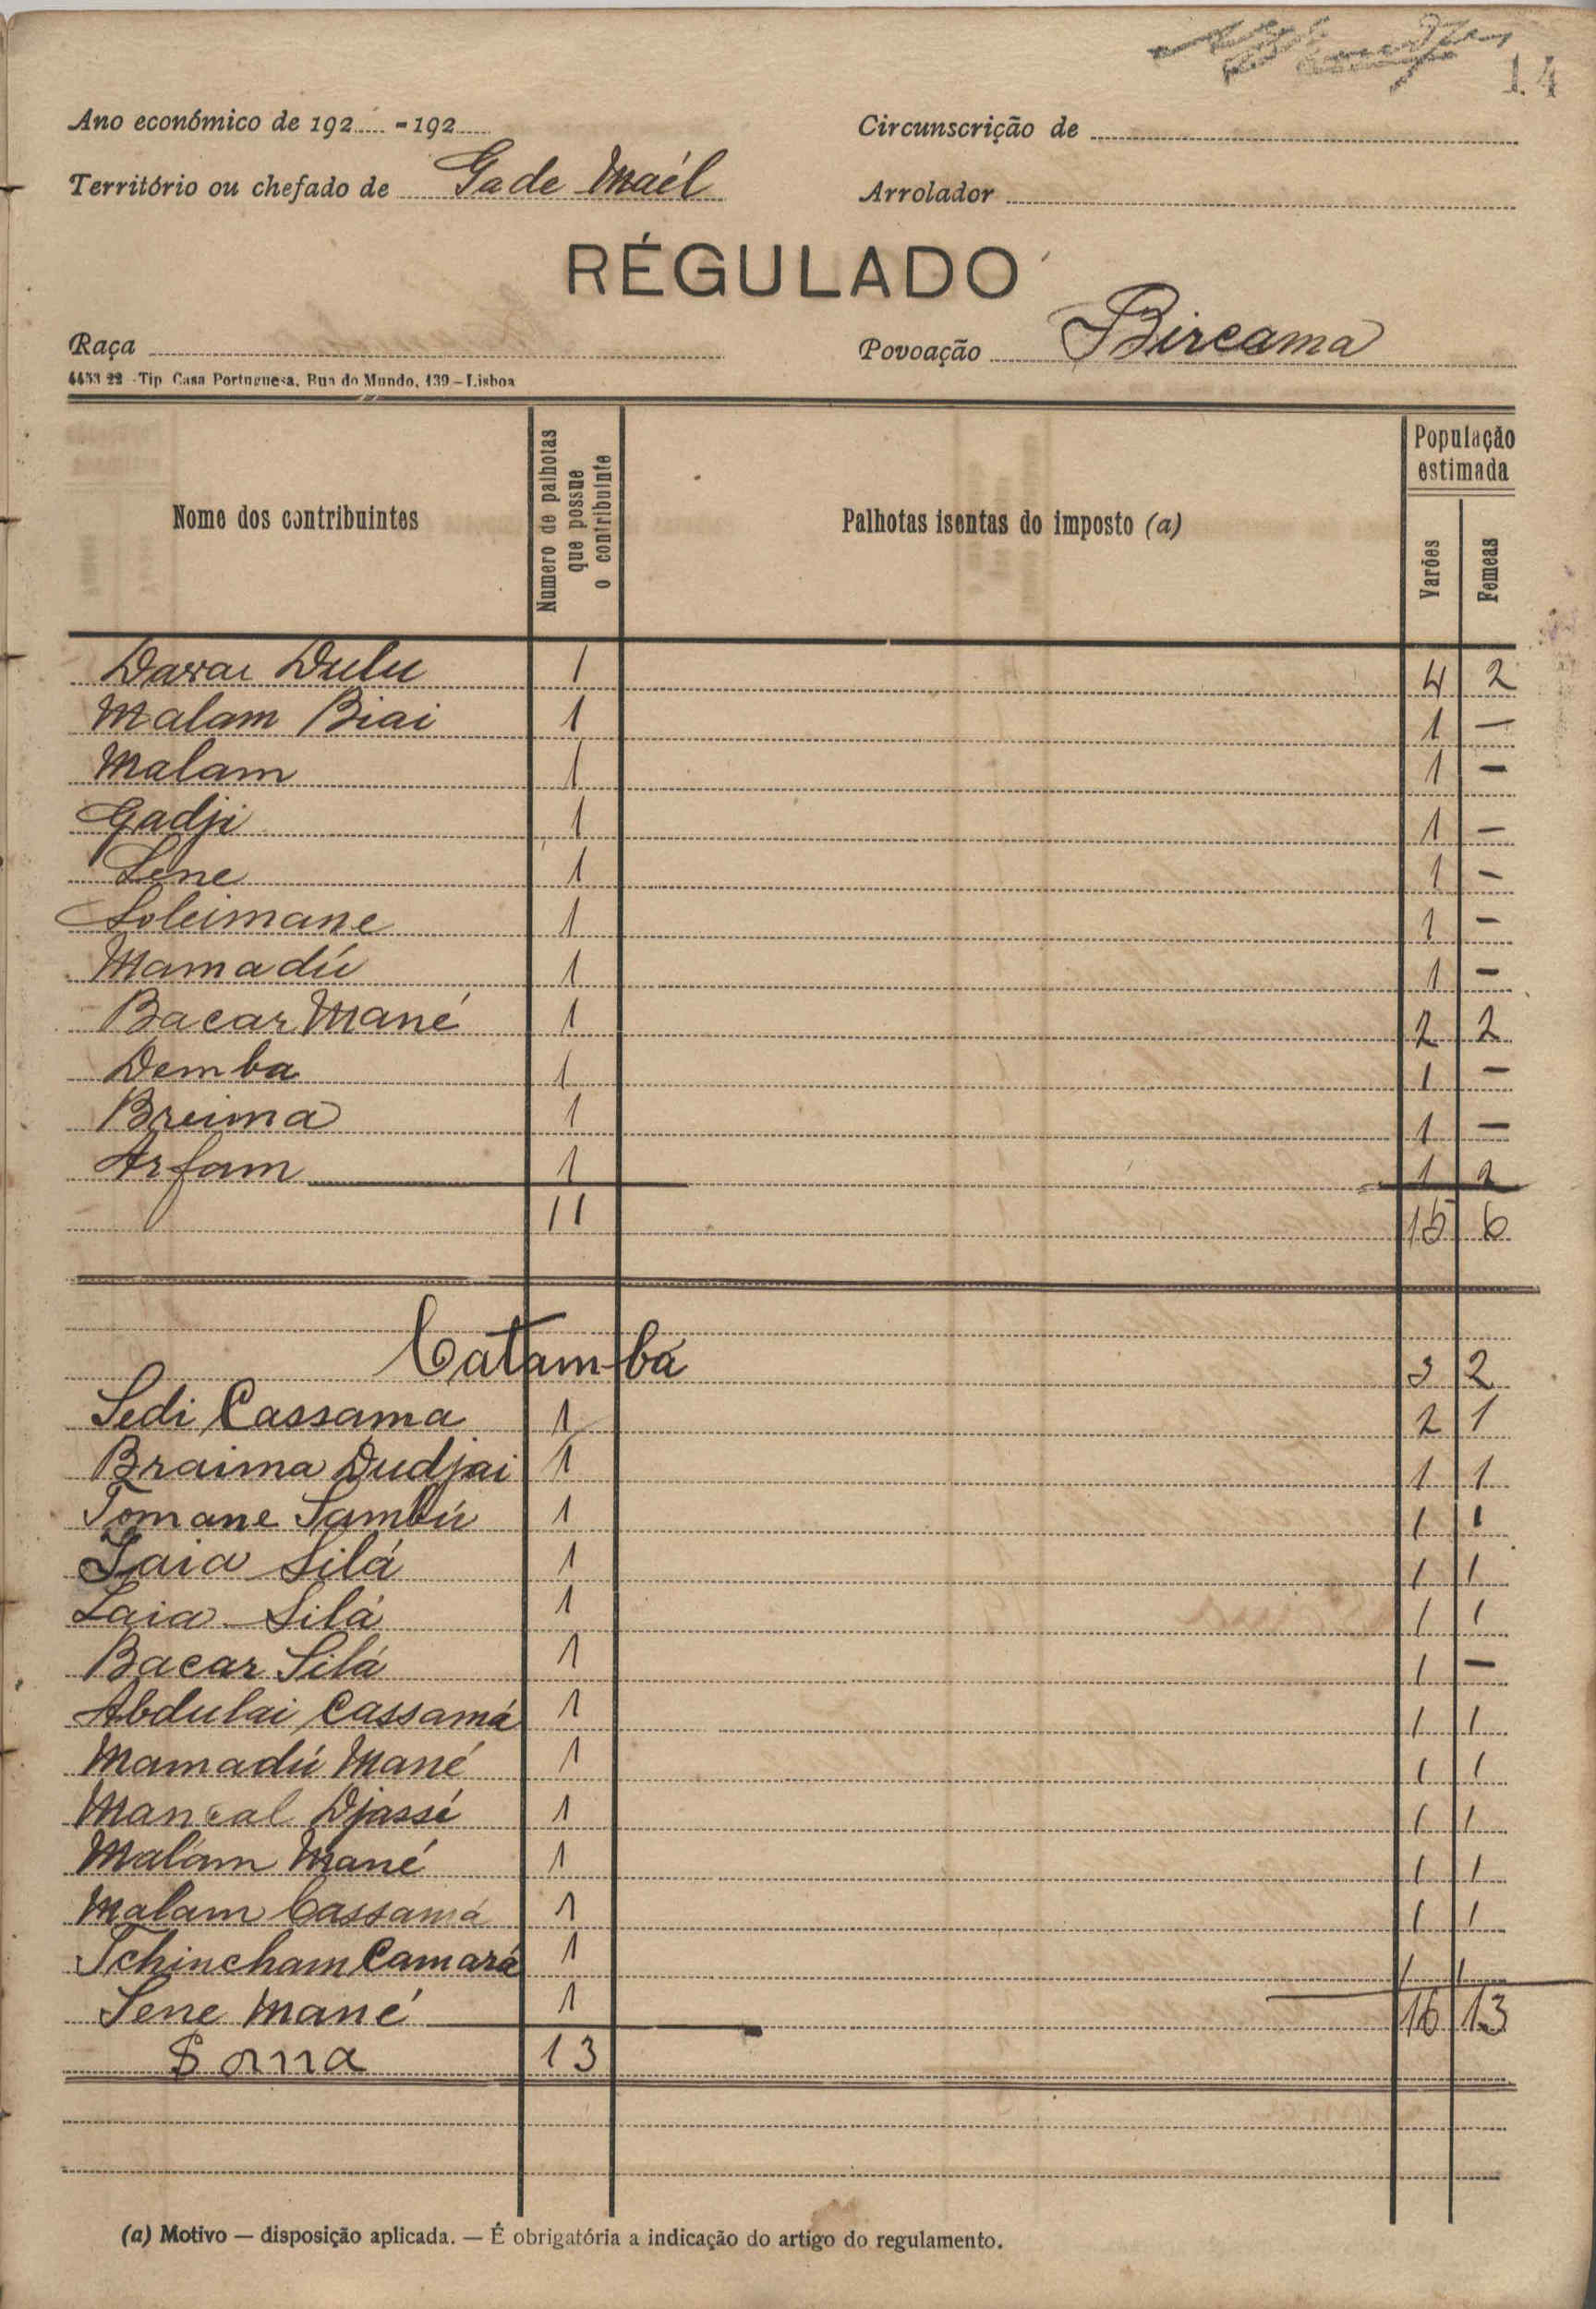 14
Ano económico de 192..... - 192.....
Circunscrição de
Território ou chefado de Gade Maél
Arrolador
RÉGULADO
Raça
Povoação Bircama
4453 22 - Tip Casa Portuguesa, Rua do Mundo, 139 - Lisboa
Nome dos contribuintes
Numero de palhotas que possue o contribuinte
Palhotas isentas do imposto (a)
População estimada
Varões
Femeas
Dulu 1 4 2
Malam Biai 1 1 —
Malam 1 1 —
Gadji 1 1 —
Sene 1 1 —
Soleimane 1 1 —
Mamadú 1 1 —
Bacar Mané 1 2 2
Demba 1 1 —
Breima 1 1 —
Arfam 1 1 2
11 15 6
Catamba 3 2
Sedi Cassama 1 2 1
Braima Dudjai 1 1 1
Tomane Sambú 1 1 1
Saia Silá 1 1 1
Laia Silá 1 1 1
Bacar Silá 1 1 —
Abdulai Cassamá 1 1 1
Mamadú Mané 1 1 1
Mancal Djassi 1 1 1
Malam Mané 1 1 1
Malam Cassamá 1 1 1
Tchincham Camará 1 1 1
Sene Mané 1 16 13
Soma 13
(a) Motivo — disposição aplicada. — É obrigatória a indicação do artigo do regulamento.